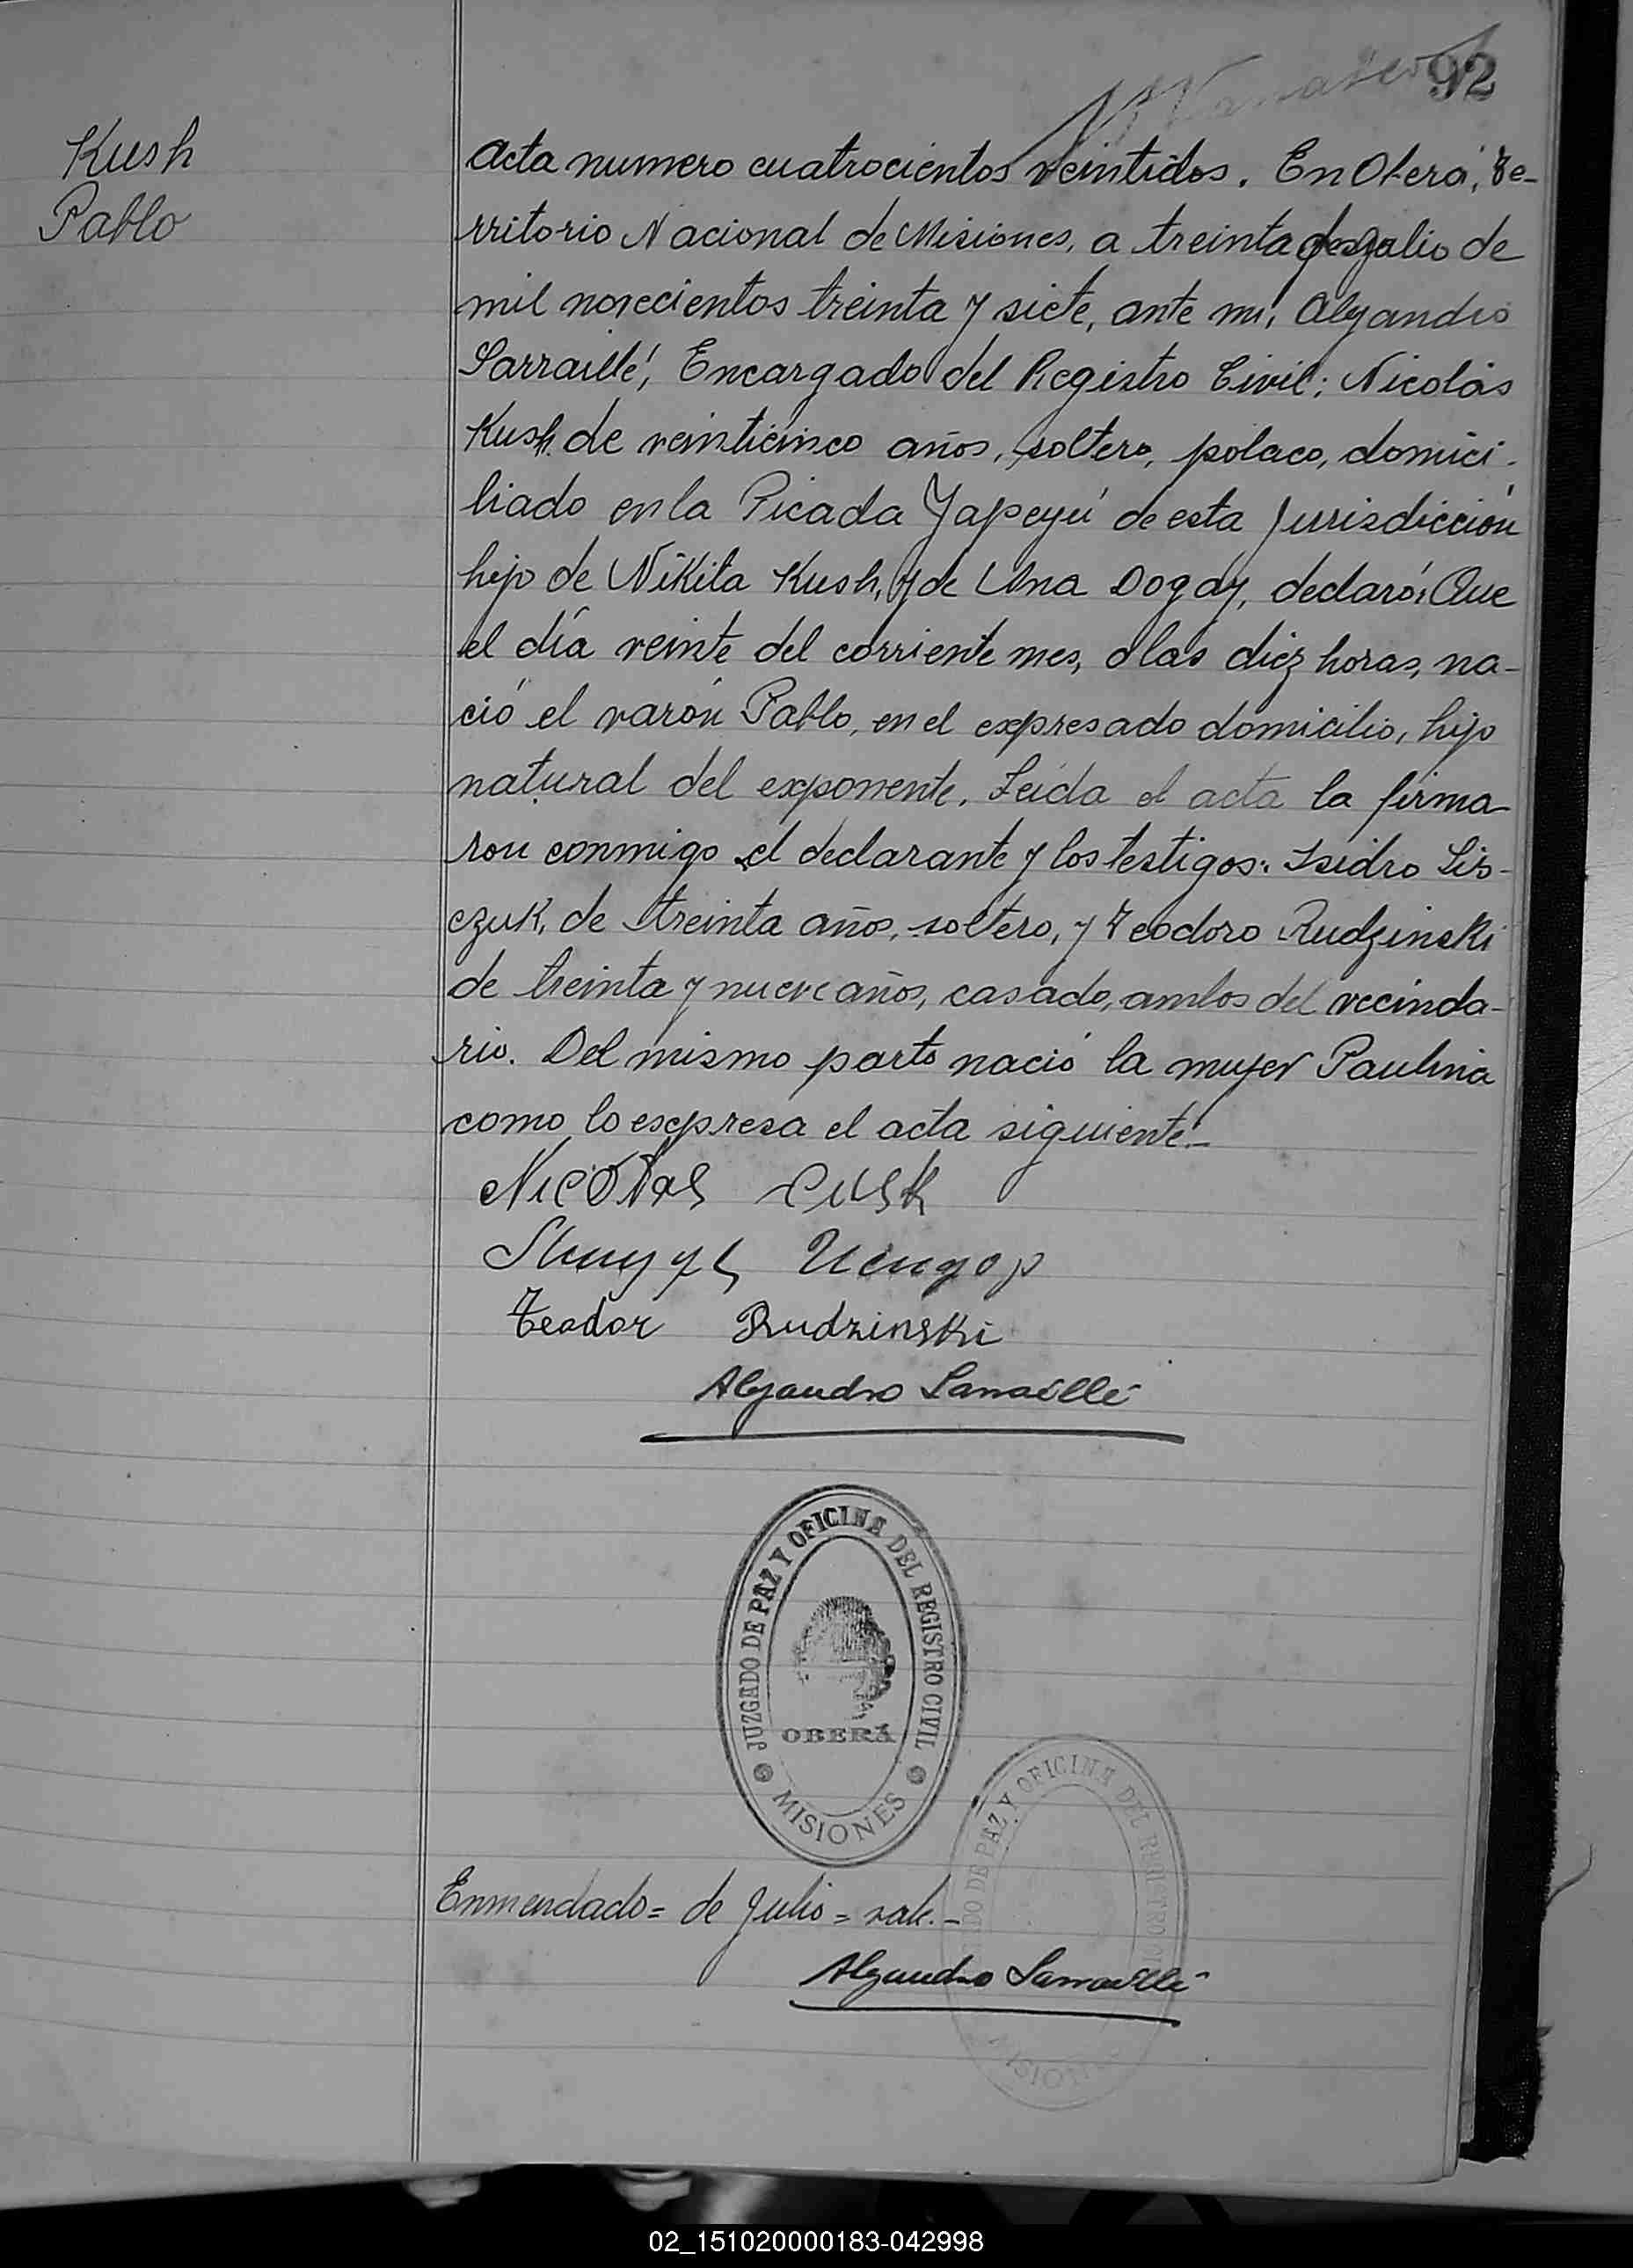 92
Kush
Pablo
Acta numero cuatrocientos veintidos. En Oberá, Te-
rritorio Nacional de Misiones, a treinta de Julio de
mil novecientos treinta y siete, ante mi, Alejandro
Sarraillé, Encargado del Registro Civil: Nicolás
Kush de veinticinco años, soltero, polaco, domici-
liado en la Picada Yapeyú de esta Jurisdicción
hijo de Nikita Kush, y de Una Dogay, declaró: Que
el día veinte del corriente mes, a las diez horas, na-
ció el varón Pablo, en el expresado domicilio, hijo
natural del exponente. Leida el acta la firma
ron conmigo el declarante y los testigos: Isidro Lis-
czuk, de treinta años, soltero, y Teodoro Rudzinski
de treinta y nueve años, casado, ambos del vecinda-
rio. Del mismo parto nació la mujer Paulina
como lo expresa el acta siguiente.-
Nicolas Cusk
Teodor Rudzinski
Alejandro Sarraillé
JUZGADO DE PAZ Y OFICINA DEL REGISTRO CIVIL
OBERÁ
MISIONES
Enmendado = de Julio = vale.-
Alejandro Sarraillé
02_151020000183-042998